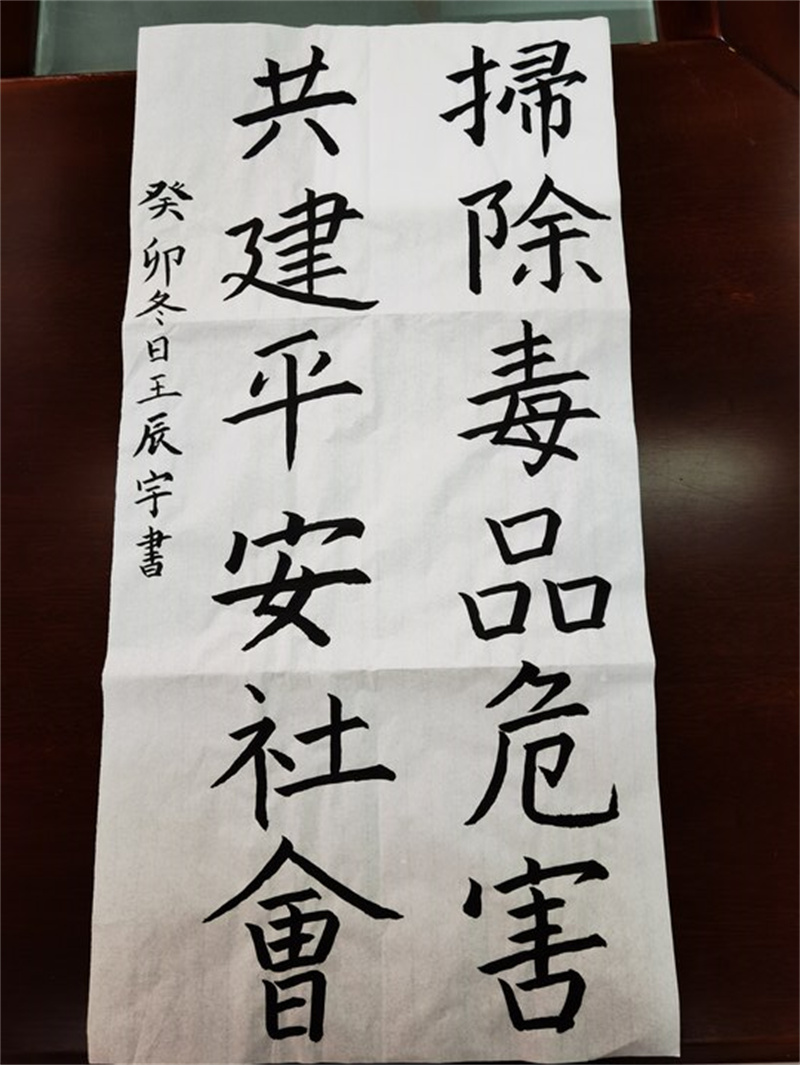 掃除毒品危害
共建平安社會
癸卯冬日王辰宇書